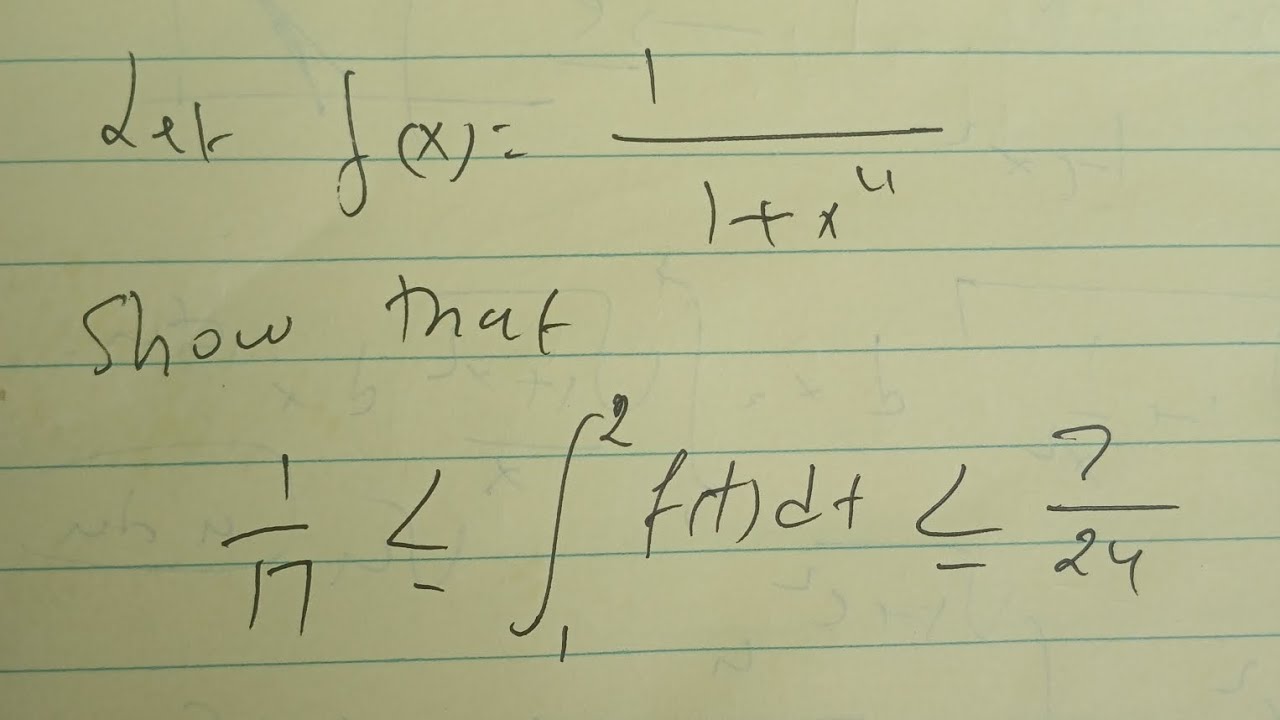 Let f(x) = 1 / 1 + x⁴
Show that
1/17 ≤ ∫₁² f(t)dt ≤ 7/24